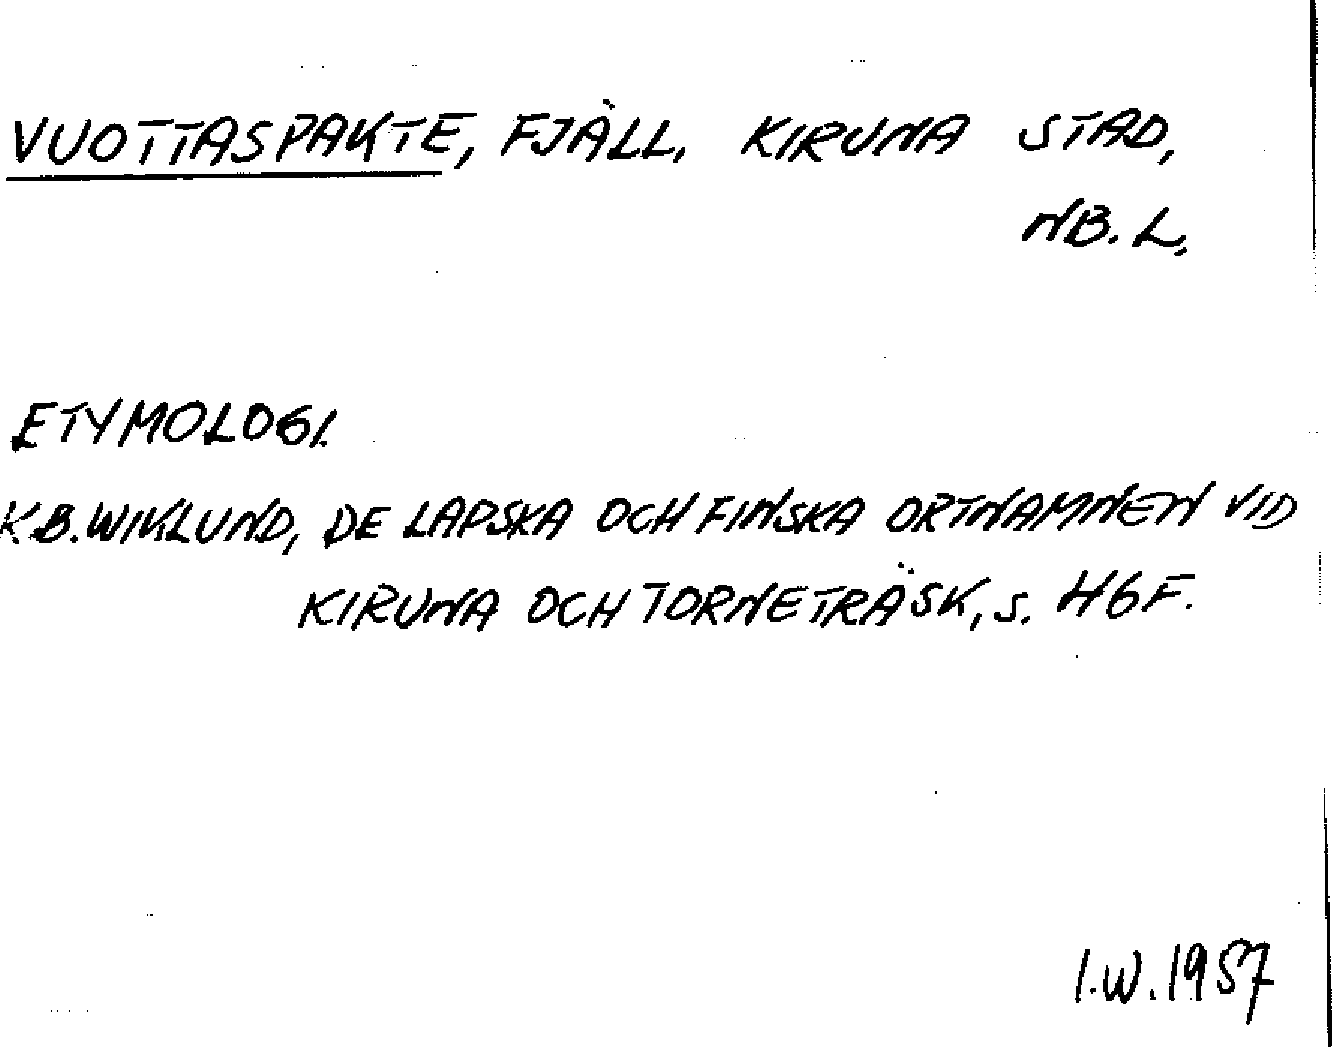 VUOTTASPAKTE, FJÄLL. KIRUNA STAD,
NB. L.
ETYMOLOGI.
K.B. WIKLUND, DE LAPSKA OCH FINSKA ORTNAMNEN VID
KIRUNA OCH TORNETRÄSK, S. 46F.
I.W. 1957